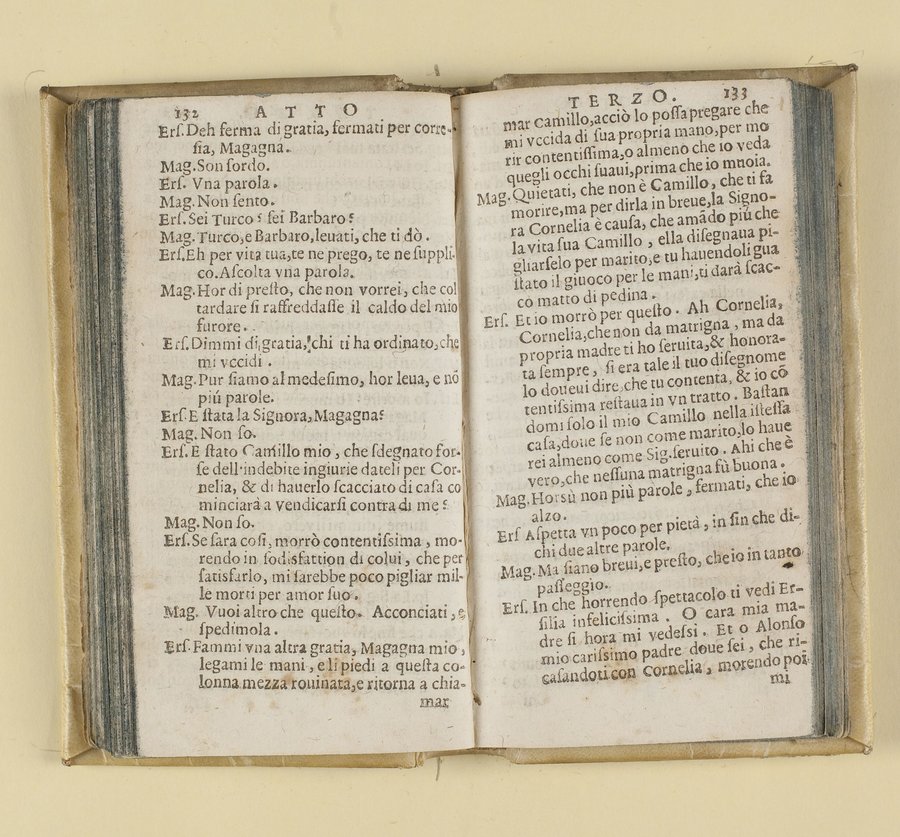 132 ATTO
Erſ. Deh ferma di gratia, fermati per corte-
ſia, Magagna.
Mag. Son ſordo.
Erſ. Vna parola.
Mag. Non ſento.
Erſ. Sei Turco? ſei Barbaro?
Mag. Turco, e Barbaro, leuati, che ti dò.
Erſ. Eh per vita tua, te ne prego, te ne ſuppli
co. Aſcolta vna parola.
Mag. Hor di preſto, che non vorrei, che col
tardare ſi raffreddaſſe il caldo del mio
furore.
Erſ. Dimmi di gratia, chi ti ha ordinato, che
mi vccidi.
Mag. Pur ſiamo al medeſimo, hor leua, e nõ
più parole.
Erſ. E ſtata la Signora, Magagna?
Mag. Non ſo.
Erſ. E ſtato Camillo mio, che ſdegnato for-
ſe dell'indebite ingiurie dateli per Cor-
nelia, & di hauerlo ſcacciato di caſa co
minciarà a vendicarſi contra di me?
Mag. Non ſo.
Erſ. Se ſara coſi, morrò contentiſsima, mo-
rendo in ſodisfattion di colui, che per
ſatisfarlo, mi ſarebbe poco pigliar mil-
le morti per amor ſuo.
Mag. Vuoi altro che queſto. Acconciati, e
ſpedimola.
Erſ. Fammi vna altra gratia, Magagna mio,
legami le mani, e li piedi a queſta co-
lonna mezza rouinata, e ritorna a chia-
mar
TERZO. 133
mar Camillo, acciò lo poſſa pregare che
mi vccida di ſua propria mano, per mo
rir contentiſſima, o almeno che io veda
quegli occhi ſuaui, prima che io muoia.
Mag. Quietati, che non è Camillo, che ti fa
morire, ma per dirla in breue, la Signo-
ra Cornelia è cauſa, che amãdo più che
la vita ſua Camillo, ella diſegnaua pi-
gliarſelo per marito, e tu hauendoli gua
ſtato il giuoco per le mani, ti darà ſcac-
co matto di pedina.
Erſ. Et io morrò per queſto. Ah Cornelia,
Cornelia, che non da matrigna, ma da
propria madre ti ho ſeruita, & honora-
ta ſempre, ſi era tale il tuo diſegnome
lo doueui dire, che tu contenta, & io cõ
tentiſsima reſtaua in vn tratto. Baſtan
domi ſolo il mio Camillo nella iſteſſa
caſa, doue ſe non come marito, lo haue
rei almeno come Sig. ſeruito. Ahi che è
vero, che neſſuna matrigna fù buona.
Mag. Horsù non più parole, fermati, che io
alzo.
Erſ Aſpetta vn poco per pietà, in ſin che di-
chi due altre parole.
Mag. Ma ſiano breui, e preſto, che io in tanto
paſſeggio.
Erſ. In che horrendo ſpettacolo ti vedi Er-
ſilia infeliciſsima. O cara mia ma-
dre ſi hora mi vedeſsi. Et o Alonſo
mio cariſsimo padre doue ſei, che ri-
caſandoti con Cornelia, morendo poi
mi